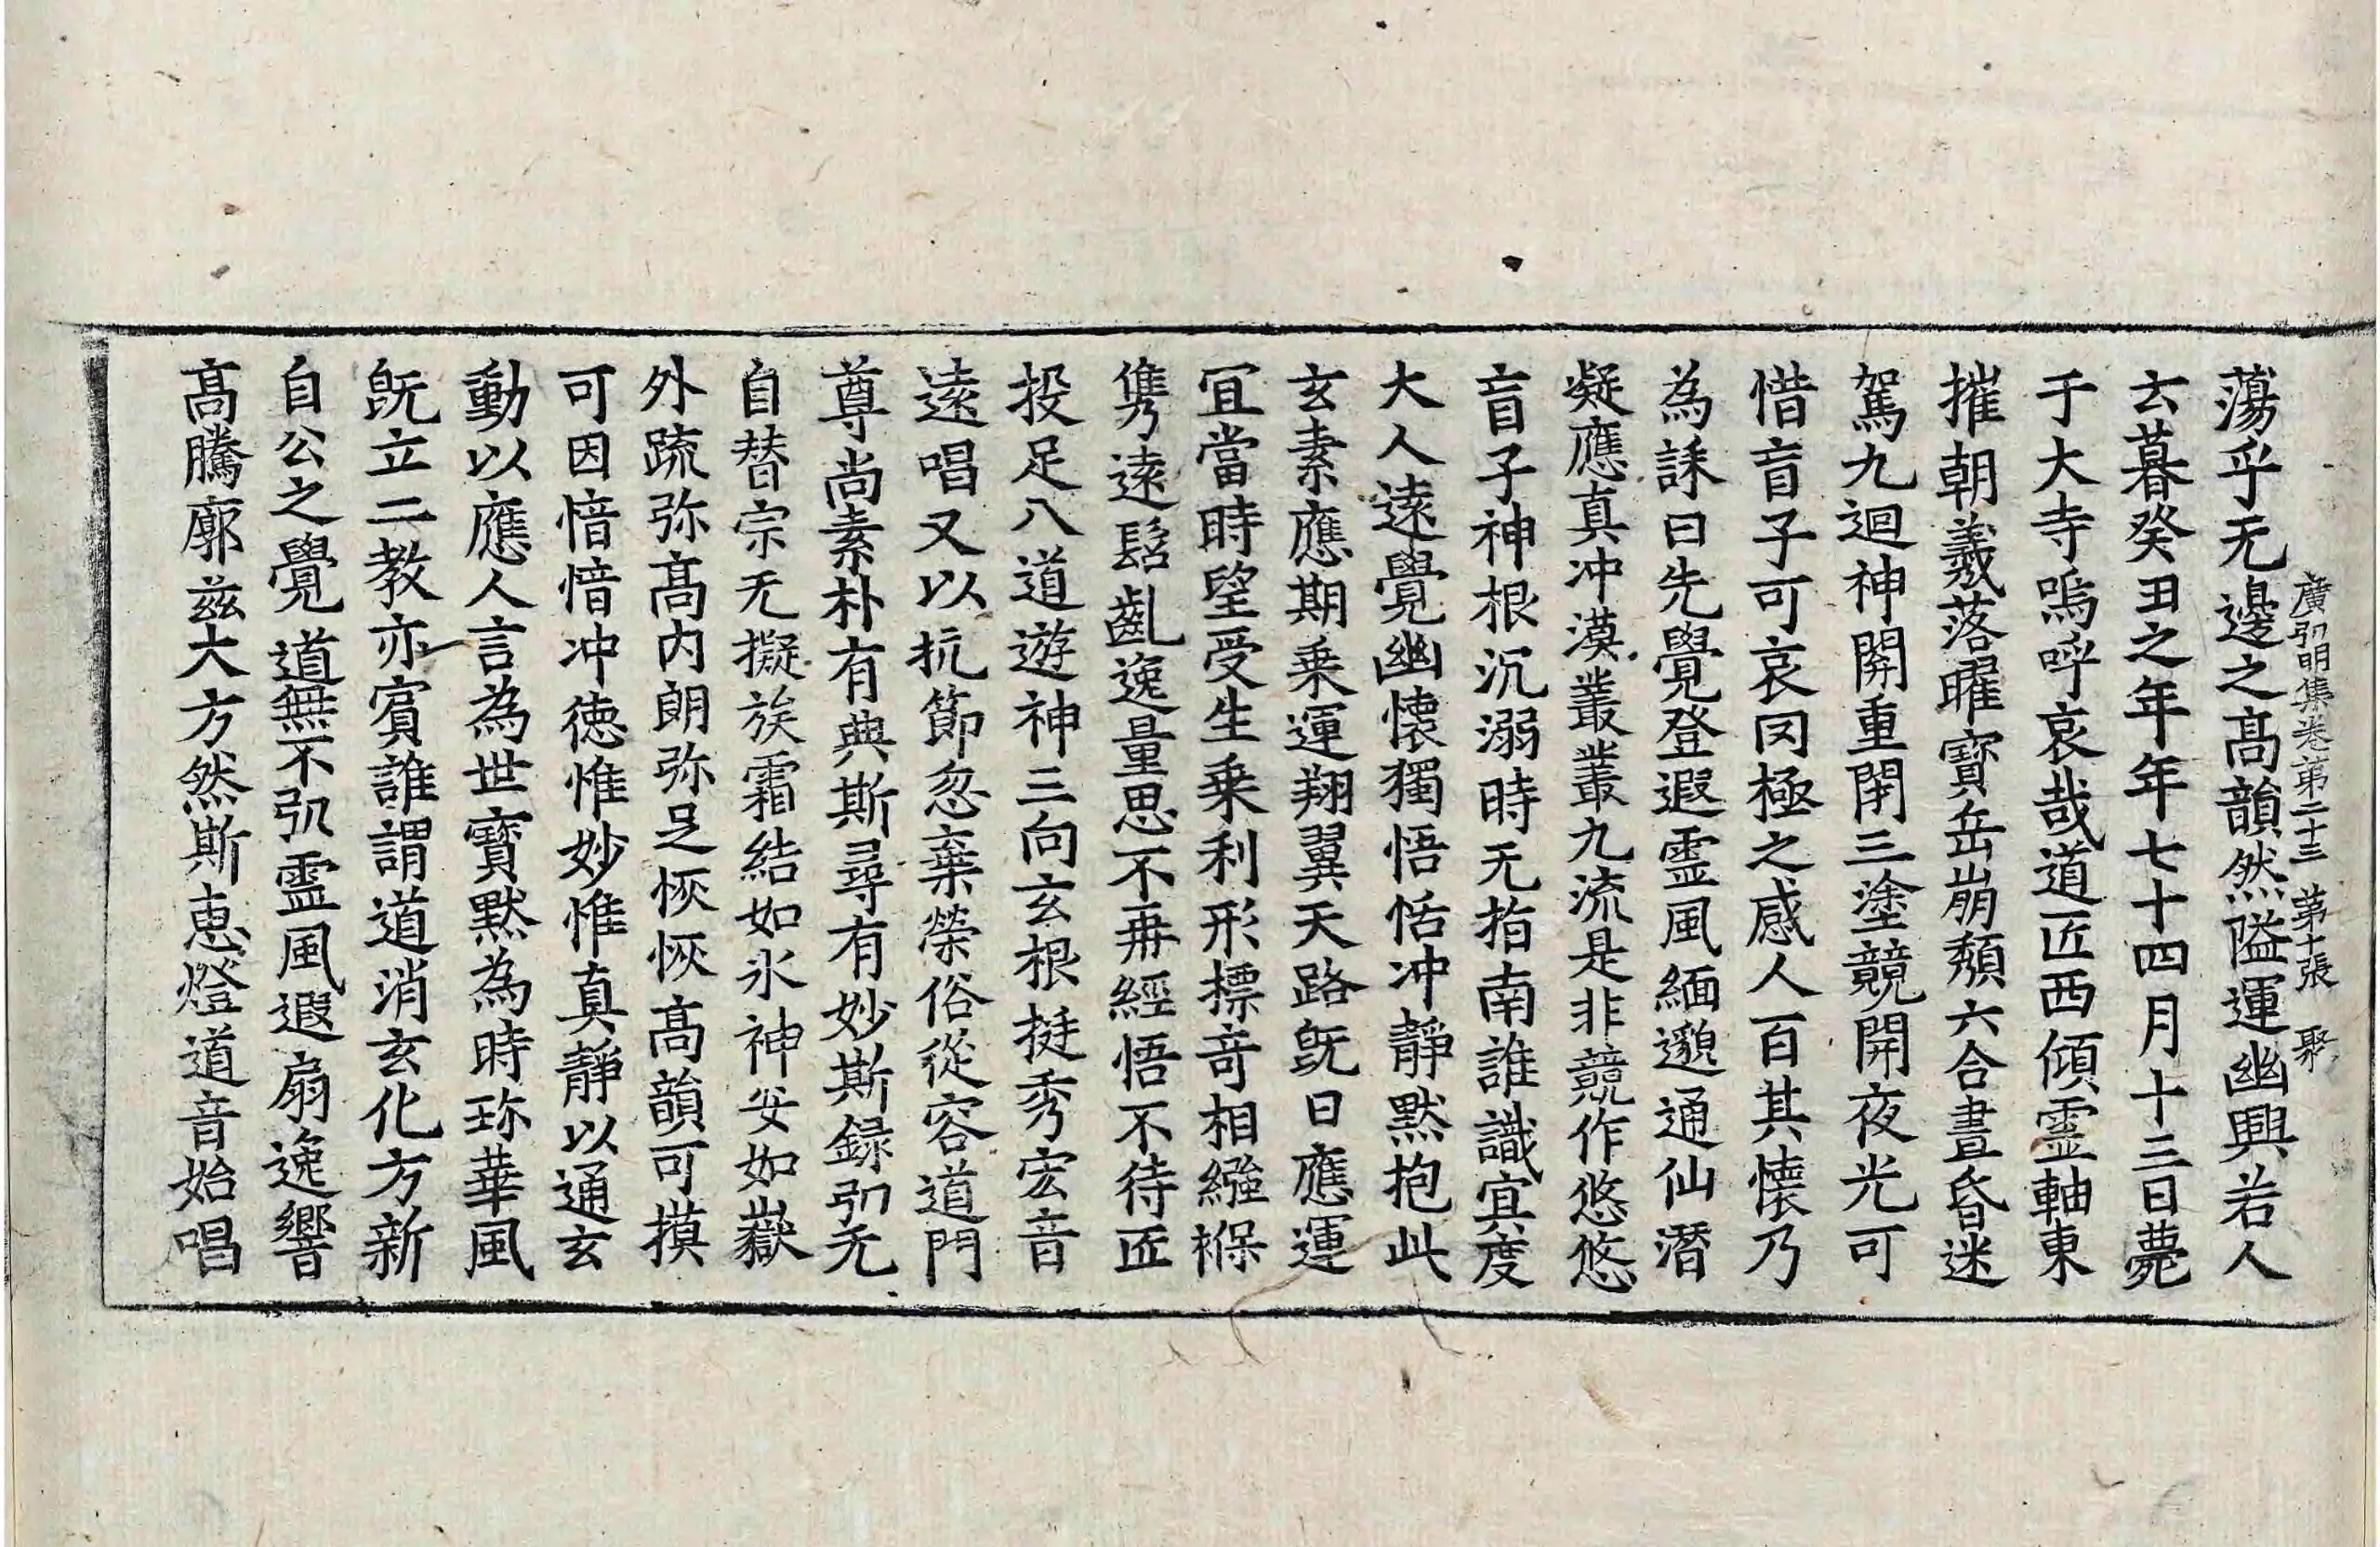 廣弘明集卷第二十三 第十張 聚
蕩乎无邊之高韻然隘運幽興若人
云暮癸丑之年年七十四月十三日薨
于大寺嗚呼哀哉道匠西傾霊軸東
摧朝羲落曜寶岳崩頹六合晝昏迷
駕九迴神關重閇三塗競開夜光可
惜盲子可哀罔極之感人百其懐乃
為誄曰先覺登遐霊風緬邈通仙潛
凝應真冲漠叢叢九流是非競作悠悠
盲子神根沉溺時无指南誰識冥度
大人遠覺幽懐獨悟恬冲静默抱此
玄素應期乗運翔翼天路旣曰應運
冝當時望受生乗利形摽竒相繦褓
儁遠髫齓逸量思不再經悟不待匠
投足八道遊神三向玄根挺秀宏音
遠唱又以抗節忽棄榮俗從容道門
尊尚素朴有典斯尋有妙斯録弘无
自替宗无擬族霜結如氷神安如嶽
外疏弥高内朗弥足恢恢高韻可摸
可因愔愔冲徳惟妙惟真静以通玄
動以應人言為世寳默為時珎華風
旣立二教亦賔誰謂道消玄化方新
自公之覺道無不弘霊風遐扇逸響
高騰廓兹大方然斯惠燈道音始唱